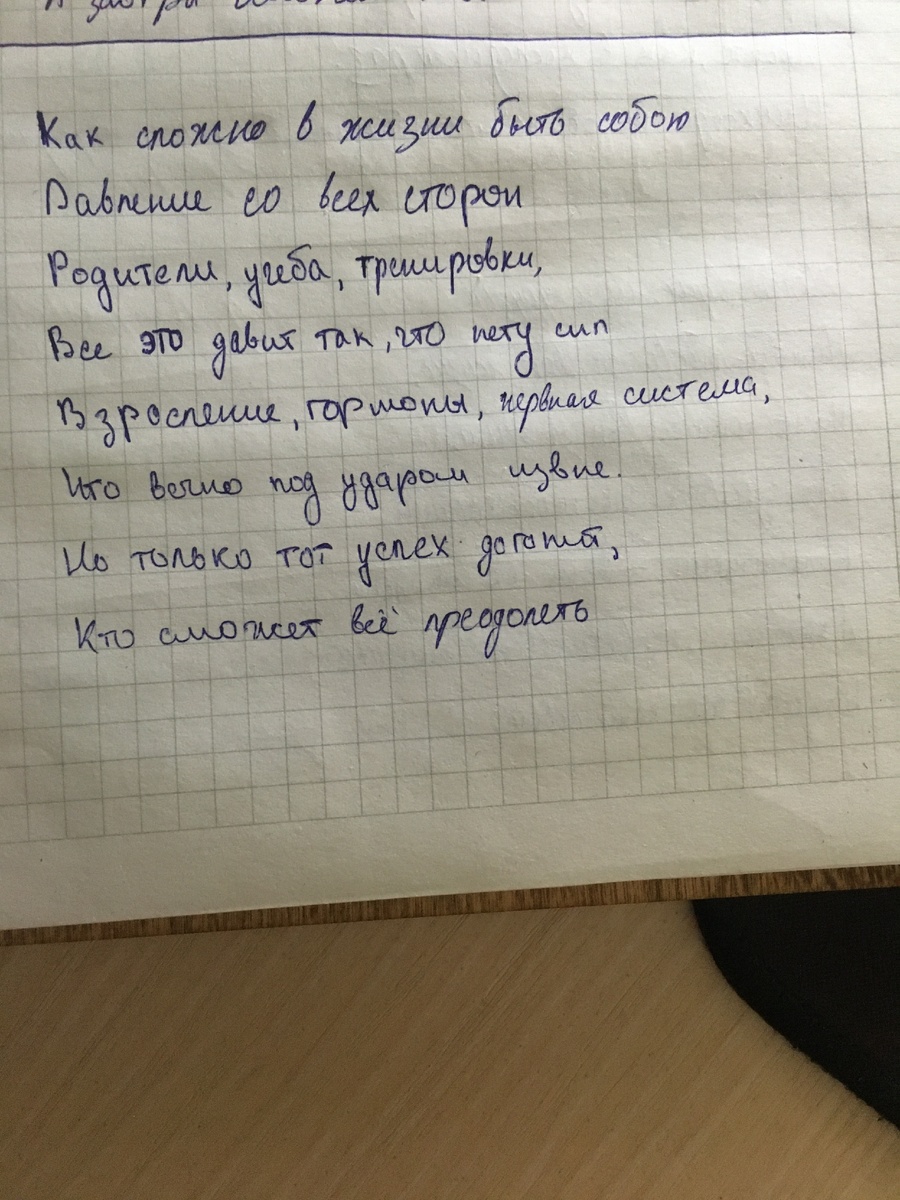 Как сложно в жизни быть собою
Давление со всех сторон
Родители, учеба, тренировки,
Все это давит так, что нету сил
Взросление, гормоны, нервная система,
Что вечно под ударом извне.
Но только тот успех догонит,
Кто сможет всё преодолеть